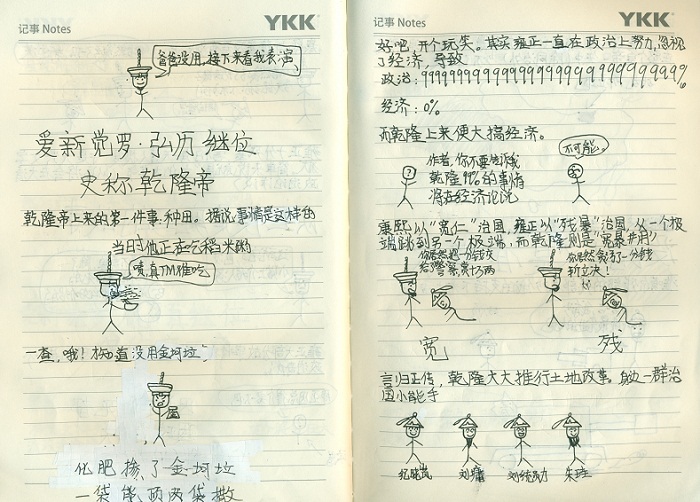 记事 Notes
YKK
爸爸没用,接下来看我表演
爱新觉罗·弘历 继位
史称 乾隆帝
乾隆帝上来的第一件事:种田。据说事情是这样的
当日他正在吃稻米粥
啧,真TM难吃
一查,哦!
没用金坷垃
化肥掺了金坷垃
一袋能顶两袋撒
记事 Notes
YKK
好吧,开个玩笑。其实雍正一直在政治上努力,忽视
了经济,导致
政治:
经济:0%
而乾隆上来便大搞经济。
作者,你不要告诉我
乾隆99%的事情
将在经济论说
不可能。
康熙以“宽仁”治国,雍正以“残暴”治国,从一个极
端跳到另一个极端,而乾隆则是“宽暴并用”
你居然把一分钱交
给了警察,赏十万两
你居然贪了一分钱
斩立决!
宽
残
言归正传,乾隆大大推行土地改革。身边一群治
国小能手
纪晓岚
刘墉
刘统勋
朱珪